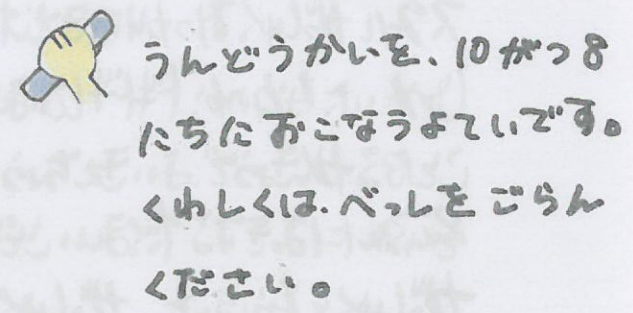 うんどうかいを、10がつ8
にちにおこなうよていです。
くわしくは、べっしをごらん
ください。